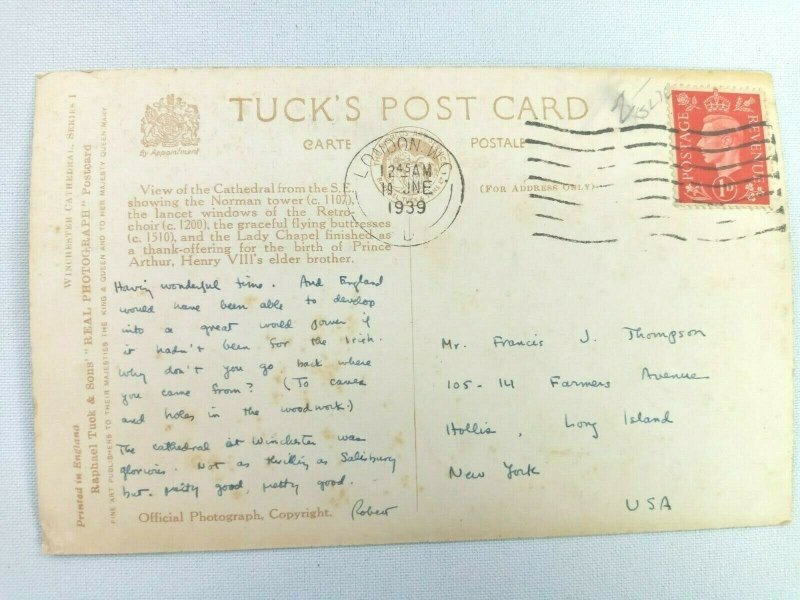 TUCK'S POST CARD
CARTE POSTALE
By Appointment
(FOR ADDRESS ONLY)
LONDON W.C.
12 45 AM
19 JUNE
1939
POSTAGE
REVENUE
1D
WINCHESTER CATHEDRAL, SERIES I
Printed in England
Raphael Tuck & Sons' "REAL PHOTOGRAPH" Postcard
FINE ART PUBLISHERS TO THEIR MAJESTIES THE KING & QUEEN AND TO HER MAJESTY QUEEN MARY
View of the Cathedral from the S.E.
showing the Norman tower (c. 1107),
the lancet windows of the Retro-
choir (c. 1200), the graceful flying buttresses
(c. 1510), and the Lady Chapel finished as
a thank-offering for the birth of Prince
Arthur, Henry VIII's elder brother.
Having wonderful time. And England
would have been able to develop
into a great world power if
it hadn't been for the Irish.
Why don't you go back where
you came from? (To caves
and holes in the woodwork!)
The cathedral at Winchester was
glorious. Not as thrilling as Salisbury
but pretty good, pretty good.
Robert
Official Photograph, Copyright.
Mr. Francis J. Thompson
105-14 Farmers Avenue
Hollis, Long Island
New York
USA